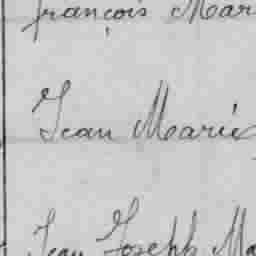 françois Mar
Jean Marie
Jean Joseph Ma